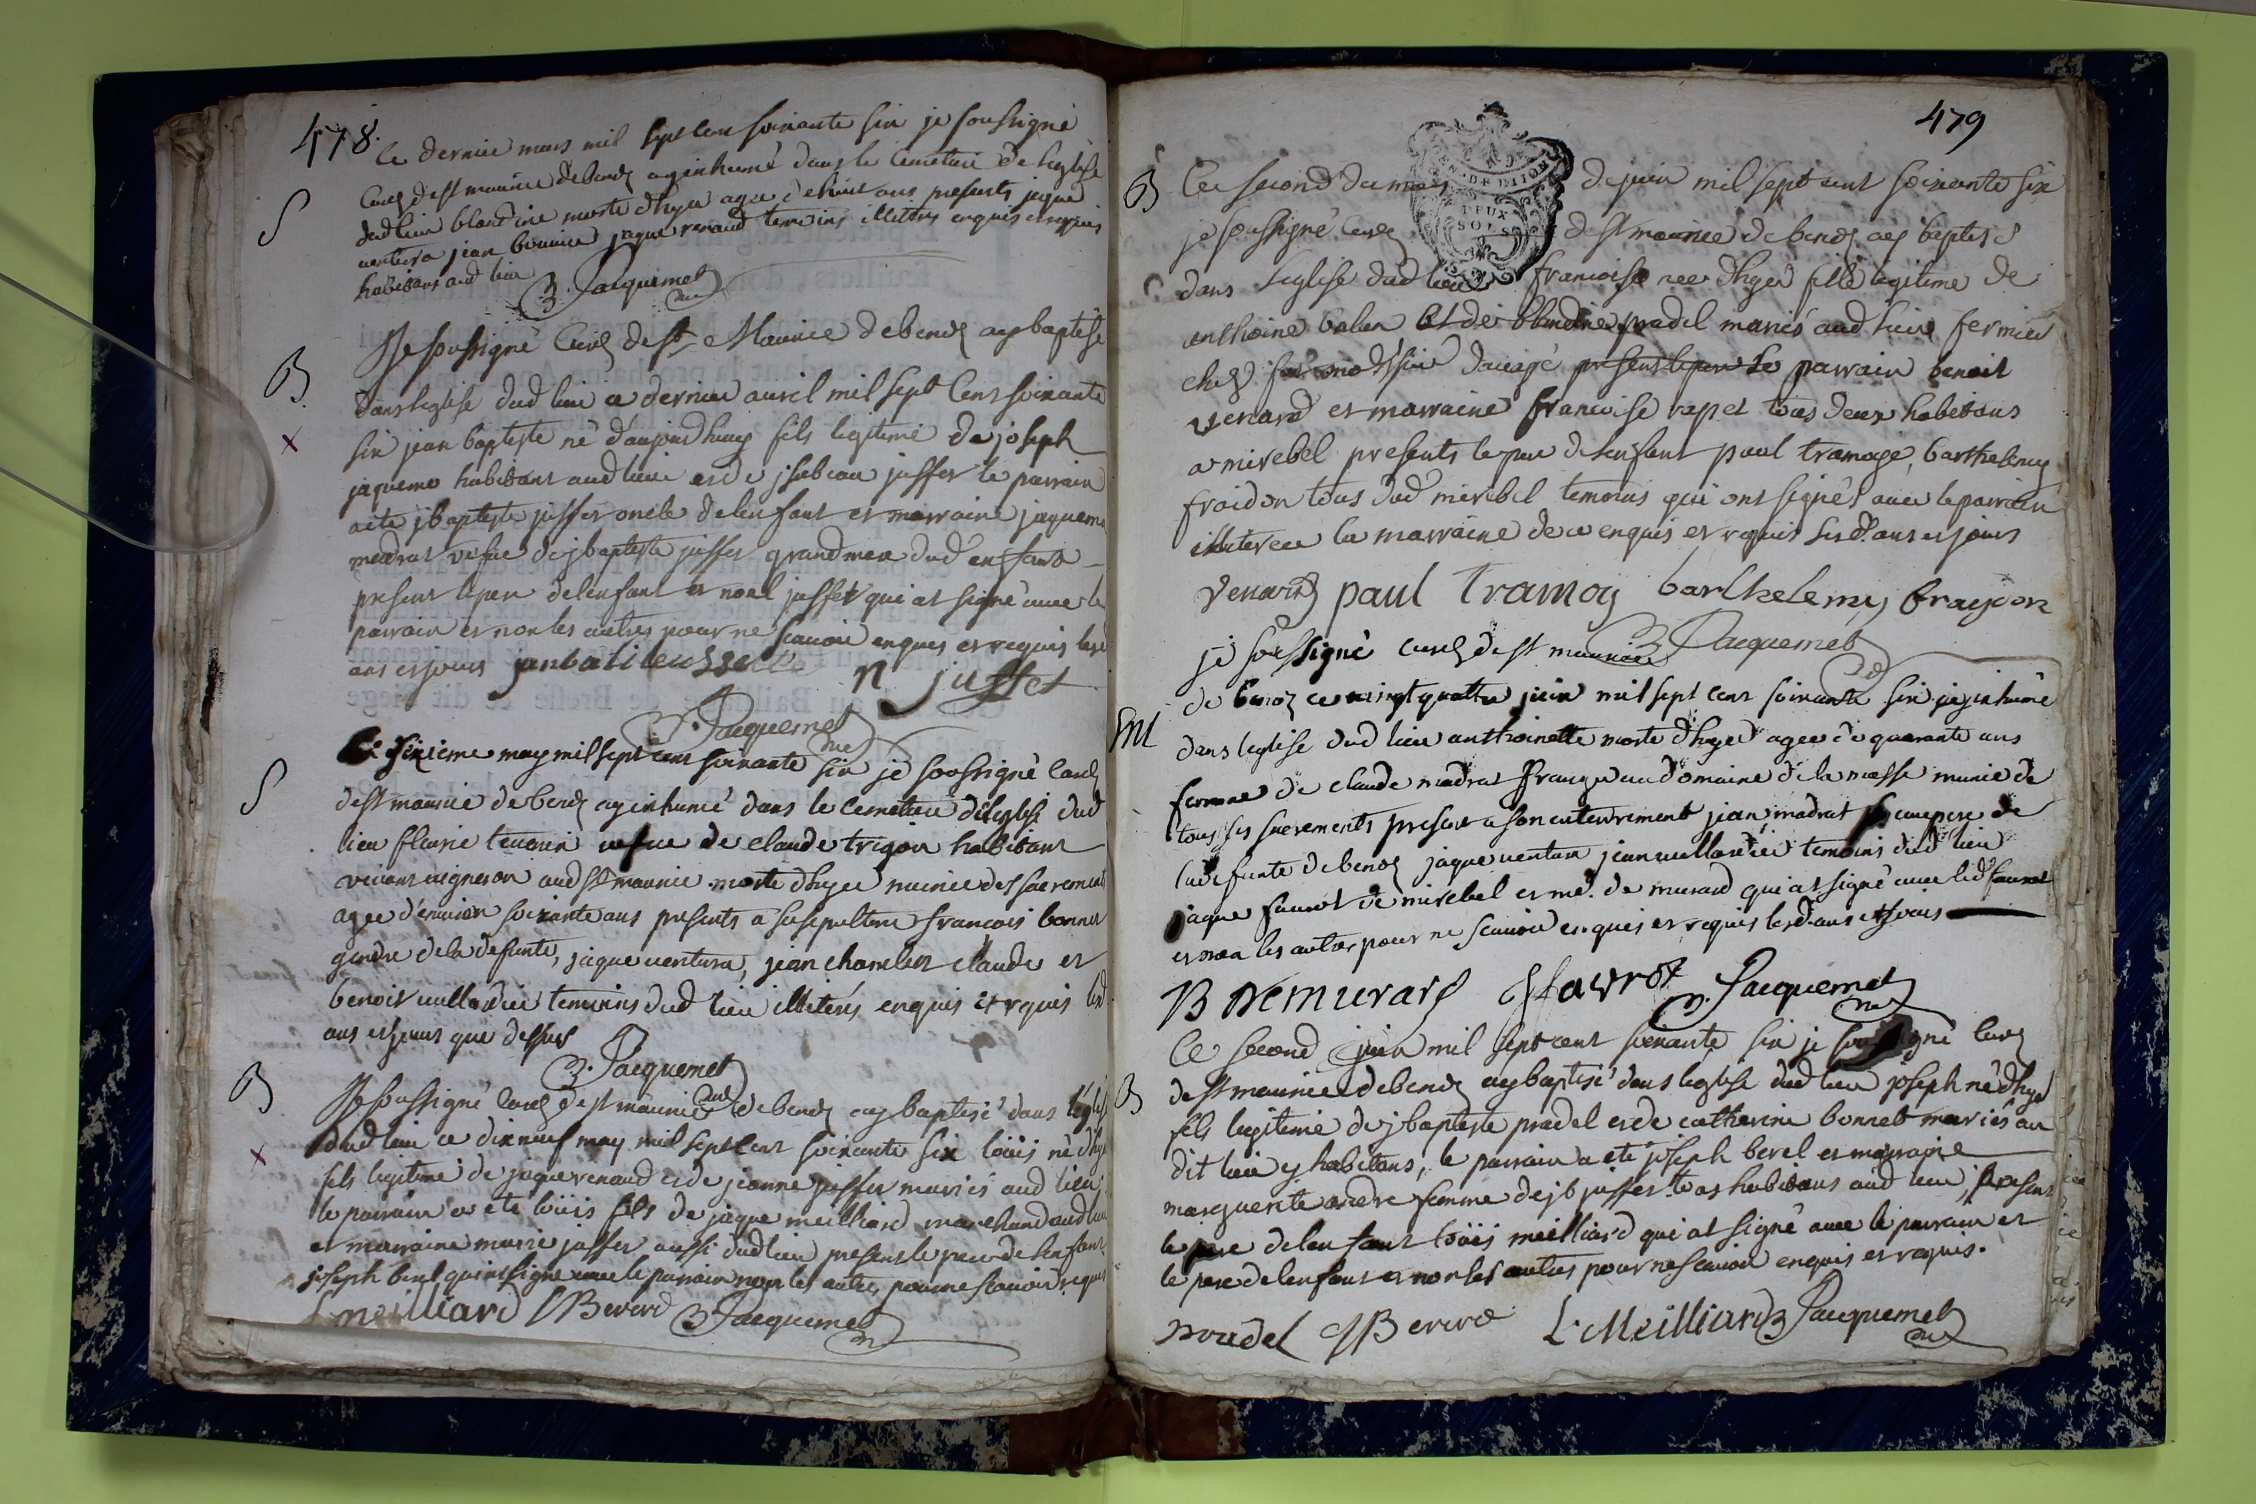 478.
Ce dernier mars mil sept cens soixante six je soussigné
S
Curé de st maurice de benoz ay inhumé dans le cemetiere de leglise
dud lieu blandine morte d'hyer agée d'ehuit ans presents jaque
ventura jean bonnier jaque renaud temoins illiteres enquis et requis
habitans aud lieu
B. Jacquemet
B
Je soussigné Curé de st Maurice de benoz ay baptisé
dans leglise dud lieu ce dernier avril mil sept Cent soixante
six jean baptiste né d'aujourdhuy fils legitime de joseph
x
jaquemo habitant aud lieu et de jsabeau juffet le parrain
a été jbaptiste juffet oncle de lenfant et marraine jaquema
madrat vefue de jbaptiste juffet grandmere dud enfant
present le pere de lenfant et noel juffet qui at signé avec le
parrain et non les autres pour ne scavoir enquis et requis lesd
ans et jours
n juffet
B. Jacquemet
Ce sixieme may mil sept cent soixante six je soussigné Curé
S
de st maurice de benoz ay inhumé dans le cemetiere de leglise dud
lieu fleurie vefue de claude trigon habitant
vivant vigneron aud st maurice morte d'hyer munie des sacrements
agée d'environ soixante ans presents a sa sepulture françois bonnet
gendre de la defunte, jaque ventura, jean chamber claude et
benoit temoins dud lieu illiterés enquis et requis lesd
ans et jours que dessus
B. Jacquemet
B
Je soussigné Curé de st maurice de benoz ay baptisé dans l'eglise
dud lieu ce dixneuf may mil sept cent soixante six louis né d'hyer
x
fils legitime de jaque renaud et de jeanne juffet mariés aud lieu
le parrain a ete louis fils de jaque meilliard marchand aud lieu
et marraine marie juffet aussi dud lieu present le pere de lenfant
joseph berel qui ont signé avec le parrain non les autres pour ne scavoir requis
L meilliard JBererd B Jacquemet
479
GEN. DE DIJON
DEUX
SOLS
B
Ce second du mois de juin mil sept cent soixante six
je soussigné Curé de st maurice de benoz ay baptisé
dans leglise dud lieu francoise née d'hyer fille legitime de
anthoine et de blandine pradel mariés aud lieu fermier
chez present le pere Le parrain benoit
venard et marraine francoise rapet tous deux habitans
a mirebel presents le pere de lenfant paul tramoge, barthelemy
fraidon tous dud mirebel temoins qui ont signés avec le parrain
illiterée la marraine de ce enquis et requis lesd. ans et jours
venard paul tramoy barthelemy fraydon
B Jacquemet
je soussigné curé de st maurice
de benoz ce vingt quatre juin mil sept cent soixante six jay inhumé
M
dans leglise dud lieu anthoinette morte d'hyer agée de quarante ans
femme de claude madrat granger au domaine de la masse munie de
tous ses sacrements present a son enterrement jean madrat beaupere de
la defunte de benoz jaque ventura jean temoins dud lieu
jaque fauvot de mirebel et me. de murard qui at signé avec led fauvot
et non les autres pour ne scavoir enquis et requis lesd ans et jours
B Demurard J favrot B. Jacquemet
Ce second juin mil sept cent soixante six je soussigné Curé
B
de st maurice de benoz ay baptisé dans leglise dud lieu joseph né d'hyer
fils legitime de jbaptiste pradel et de catherine bonnet mariés au
dit lieu y habitans, le parrain a eté joseph berel et marraine
marguerite femme de jb juffet tous habitans aud lieu, present
le pere de lenfant louis meilliard qui at signé avec le parrain et
le pere de lenfant et non les autres pour ne scavoir enquis et requis.
pradel JBererd L. Meilliard B Jacquemet